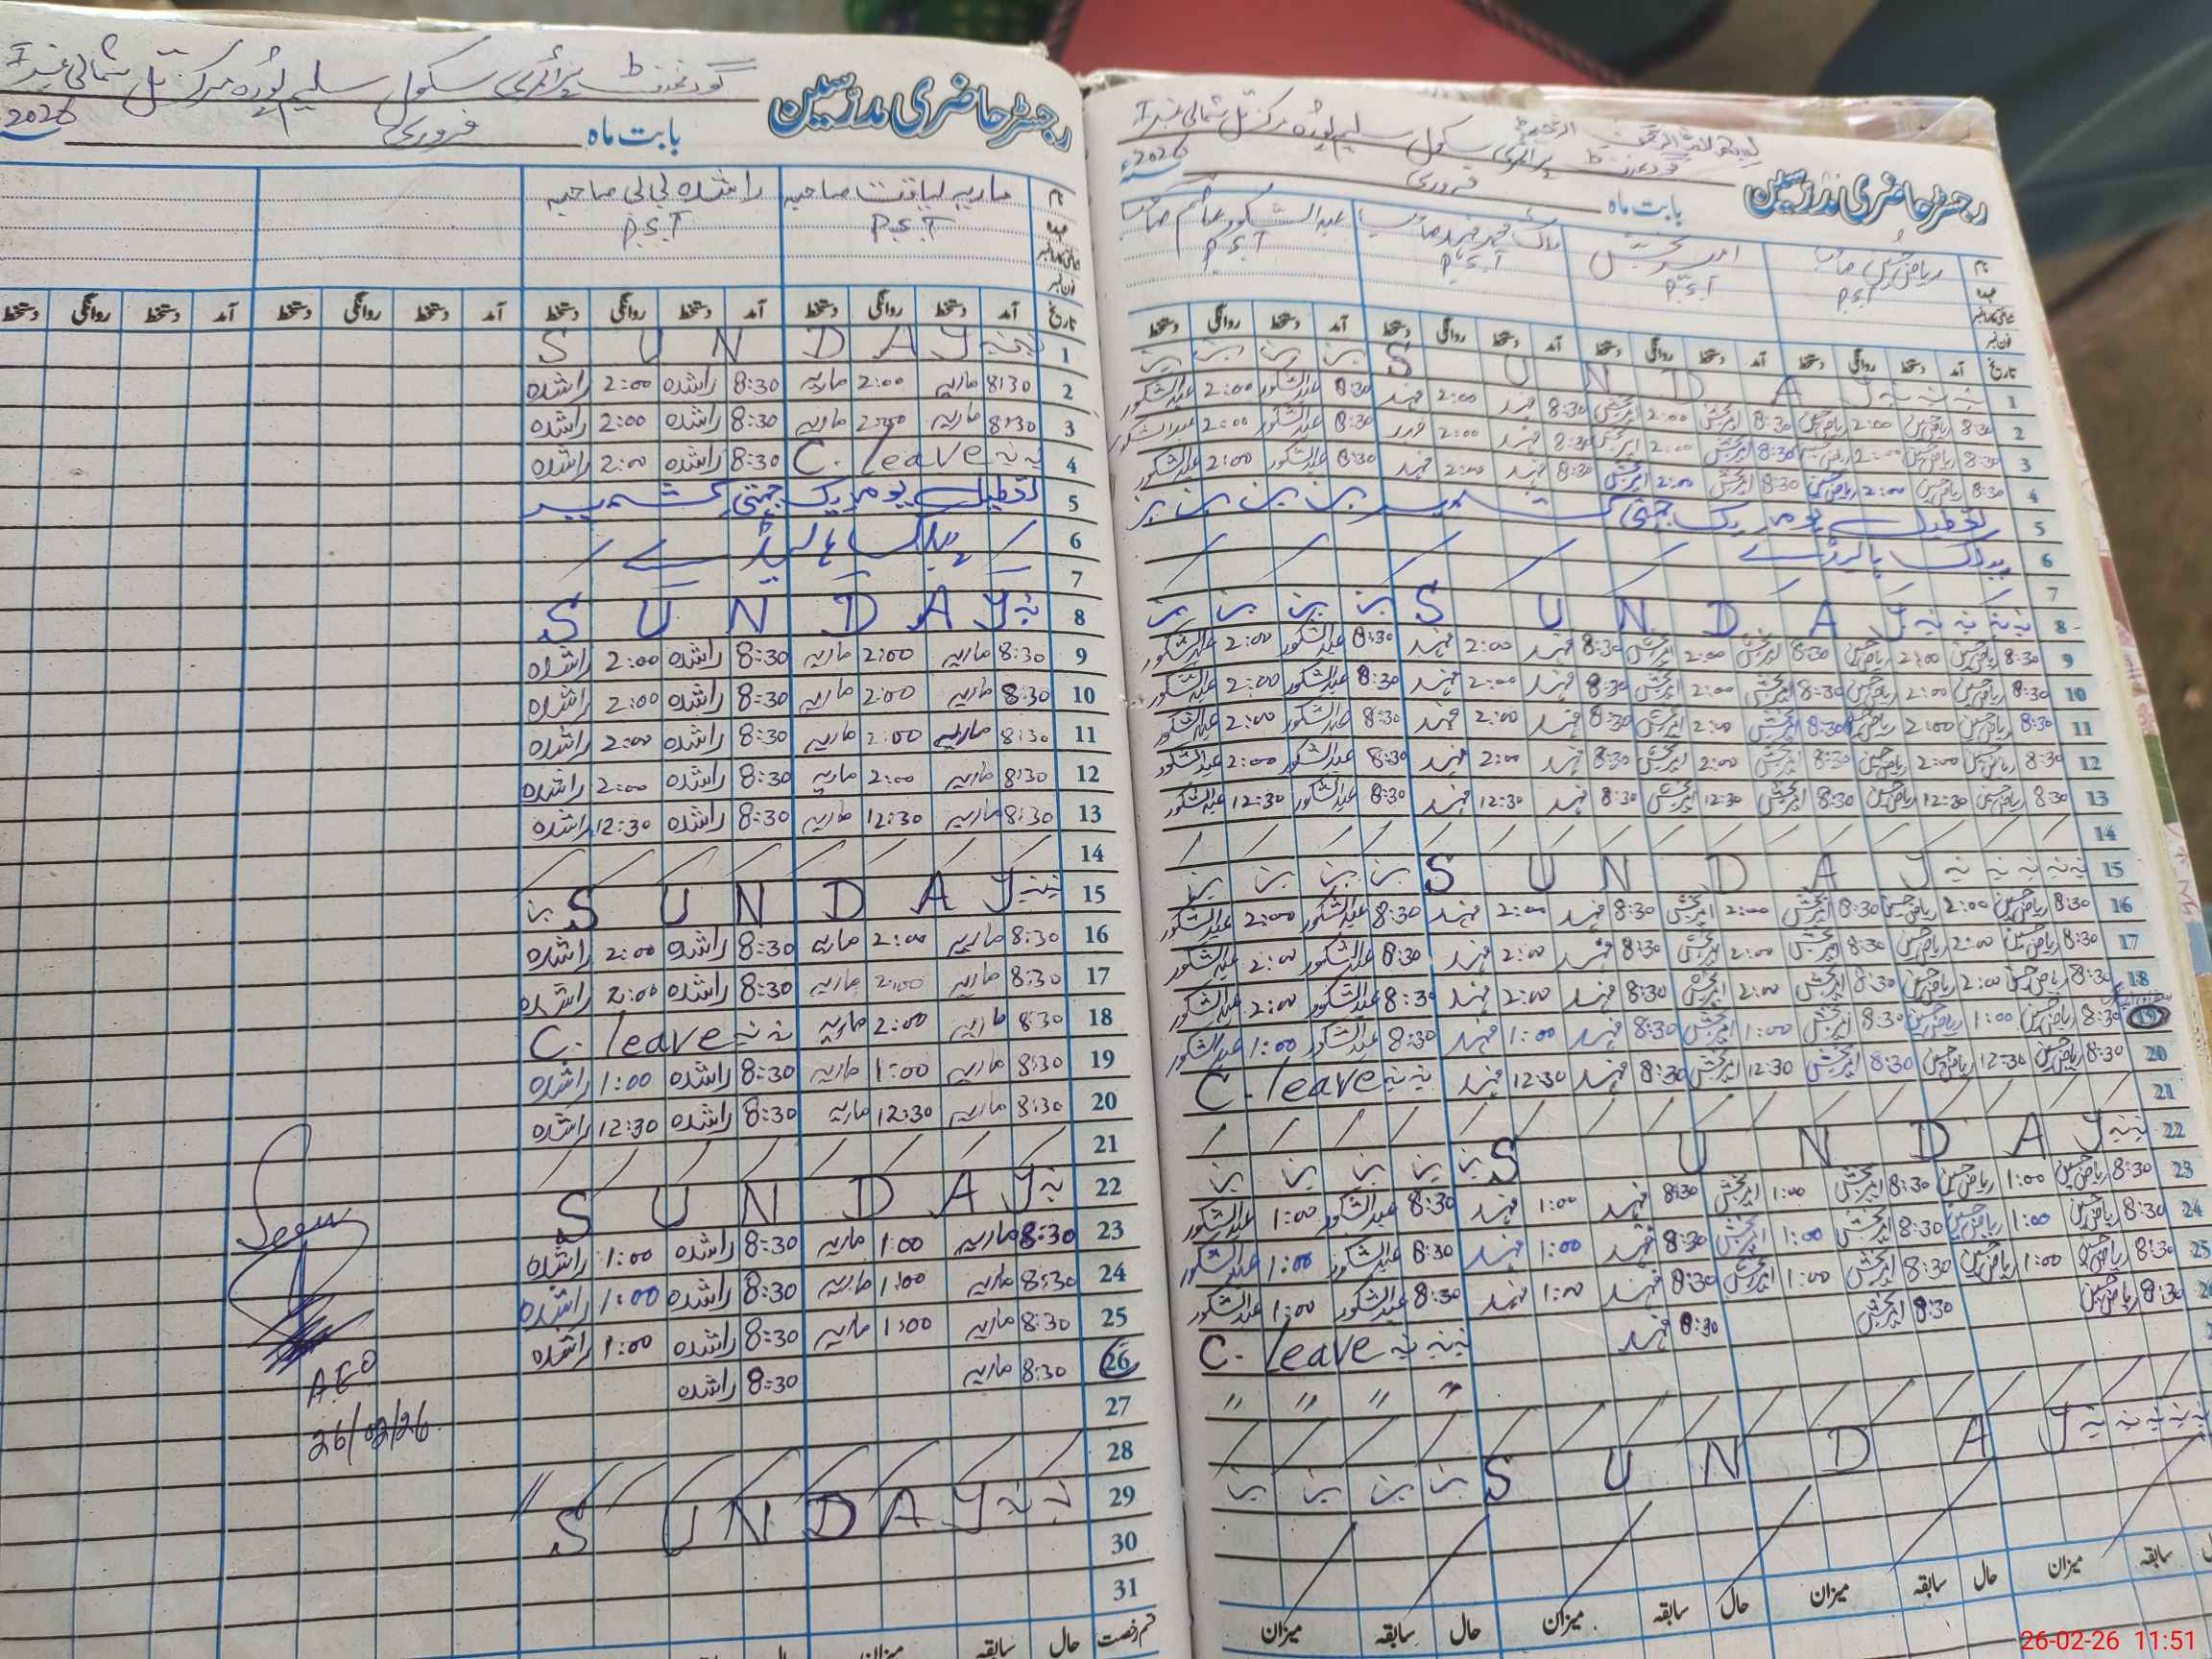 رجسٹر حاضری مدرسین
گورنمنٹ پرائمری سکول سلیم پورہ مرکز تل شمالی نمبر I
بابت ماہ فروری 2026
نام ریاض حسین صاحب امیر بخش ملک محمد فہد صاحب عبدالشکور صاحب
عہدہ P.S.T P.S.T P.S.T P.S.T
تاریخ آمد دستخط روانگی دستخط آمد دستخط روانگی دستخط آمد دستخط روانگی دستخط آمد دستخط روانگی دستخط
1 S U N D A Y
2 8:30 ریاض حسین 2:00 ریاض حسین 8:30 امیر بخش 2:00 امیر بخش 8:30 فہد 2:00 فہد 8:30 عبدالشکور 2:00 عبدالشکور
3 8:30 ریاض حسین 2:00 ریاض حسین 8:30 امیر بخش 2:00 امیر بخش 8:30 فہد 2:00 فہد 8:30 عبدالشکور 2:00 عبدالشکور
4 8:30 ریاض حسین 2:00 ریاض حسین 8:30 امیر بخش 2:00 امیر بخش 8:30 فہد 2:00 فہد 8:30 عبدالشکور 2:00 عبدالشکور
5 تعطیل یوم یکجہتی کشمیر
6 پبلک ہالیڈے
7
8 S U N D A Y
9 8:30 ریاض حسین 2:00 ریاض حسین 8:30 امیر بخش 2:00 امیر بخش 8:30 فہد 2:00 فہد 8:30 عبدالشکور 2:00 عبدالشکور
10 8:30 ریاض حسین 2:00 ریاض حسین 8:30 امیر بخش 2:00 امیر بخش 8:30 فہد 2:00 فہد 8:30 عبدالشکور 2:00 عبدالشکور
11 8:30 ریاض حسین 2:00 ریاض حسین 8:30 امیر بخش 2:00 امیر بخش 8:30 فہد 2:00 فہد 8:30 عبدالشکور 2:00 عبدالشکور
12 8:30 ریاض حسین 2:00 ریاض حسین 8:30 امیر بخش 2:00 امیر بخش 8:30 فہد 2:00 فہد 8:30 عبدالشکور 2:00 عبدالشکور
13 8:30 ریاض حسین 12:30 ریاض حسین 8:30 امیر بخش 12:30 امیر بخش 8:30 فہد 12:30 فہد 8:30 عبدالشکور 12:30 عبدالشکور
14
15 S U N D A Y
16 8:30 ریاض حسین 2:00 ریاض حسین 8:30 امیر بخش 2:00 امیر بخش 8:30 فہد 2:00 فہد 8:30 عبدالشکور 2:00 عبدالشکور
17 8:30 ریاض حسین 2:00 ریاض حسین 8:30 امیر بخش 2:00 امیر بخش 8:30 فہد 2:00 فہد 8:30 عبدالشکور 2:00 عبدالشکور
18 8:30 ریاض حسین 2:00 ریاض حسین 8:30 امیر بخش 2:00 امیر بخش 8:30 فہد 2:00 فہد 8:30 عبدالشکور 2:00 عبدالشکور
19 8:30 ریاض حسین 1:00 ریاض حسین 8:30 امیر بخش 1:00 امیر بخش 8:30 فہد 1:00 فہد 8:30 عبدالشکور 1:00 عبدالشکور
20 8:30 ریاض حسین 12:30 ریاض حسین 8:30 امیر بخش 12:30 امیر بخش 8:30 فہد 12:30 فہد C. leave
21
22 S U N D A Y
23 8:30 ریاض حسین 1:00 ریاض حسین 8:30 امیر بخش 1:00 امیر بخش 8:30 فہد 1:00 فہد 8:30 عبدالشکور 1:00 عبدالشکور
24 8:30 ریاض حسین 1:00 ریاض حسین 8:30 امیر بخش 1:00 امیر بخش 8:30 فہد 1:00 فہد 8:30 عبدالشکور 1:00 عبدالشکور
25 8:30 ریاض حسین 1:00 ریاض حسین 8:30 امیر بخش 1:00 امیر بخش 8:30 فہد 1:00 فہد 8:30 عبدالشکور 1:00 عبدالشکور
26 8:30 ریاض حسین 8:30 امیر بخش 8:30 فہد C. leave
" " " "
S U N D A Y
سابقہ میزان حال سابقہ میزان حال سابقہ میزان حال سابقہ میزان
رجسٹر حاضری مدرسین
گورنمنٹ پرائمری سکول سلیم پورہ مرکز تل شمالی نمبر I
بابت ماہ فروری 2026
نام ماریہ لیاقت صاحبہ راشدہ بی بی صاحبہ
عہدہ P.S.T P.S.T
تاریخ آمد دستخط روانگی دستخط آمد دستخط روانگی دستخط آمد دستخط روانگی دستخط آمد دستخط روانگی دستخط
1 S U N D A Y
2 8:30 ماریہ 2:00 ماریہ 8:30 راشدہ 2:00 راشدہ
3 8:30 ماریہ 2:00 ماریہ 8:30 راشدہ 2:00 راشدہ
4 C. leave 8:30 راشدہ 2:00 راشدہ
5 تعطیل یوم یکجہتی کشمیر
6 پبلک ہالیڈے
7
8 S U N D A Y
9 8:30 ماریہ 2:00 ماریہ 8:30 راشدہ 2:00 راشدہ
10 8:30 ماریہ 2:00 ماریہ 8:30 راشدہ 2:00 راشدہ
11 8:30 ماریہ 2:00 ماریہ 8:30 راشدہ 2:00 راشدہ
12 8:30 ماریہ 2:00 ماریہ 8:30 راشدہ 2:00 راشدہ
13 8:30 ماریہ 12:30 ماریہ 8:30 راشدہ 12:30 راشدہ
14
15 S U N D A Y
16 8:30 ماریہ 2:00 ماریہ 8:30 راشدہ 2:00 راشدہ
17 8:30 ماریہ 2:00 ماریہ 8:30 راشدہ 2:00 راشدہ
18 8:30 ماریہ 2:00 ماریہ C. leave
19 8:30 ماریہ 1:00 ماریہ 8:30 راشدہ 1:00 راشدہ
20 8:30 ماریہ 12:30 ماریہ 8:30 راشدہ 12:30 راشدہ
21
22 S U N D A Y
23 8:30 ماریہ 1:00 ماریہ 8:30 راشدہ 1:00 راشدہ
24 8:30 ماریہ 1:00 ماریہ 8:30 راشدہ 1:00 راشدہ
25 8:30 ماریہ 1:00 ماریہ 8:30 راشدہ 1:00 راشدہ
26 8:30 ماریہ 8:30 راشدہ
27
28
29 S U N D A Y
30
31
قسم رخصت حال سابقہ میزان حال سابقہ
AEO
26/02/26
26-02-26 11:51